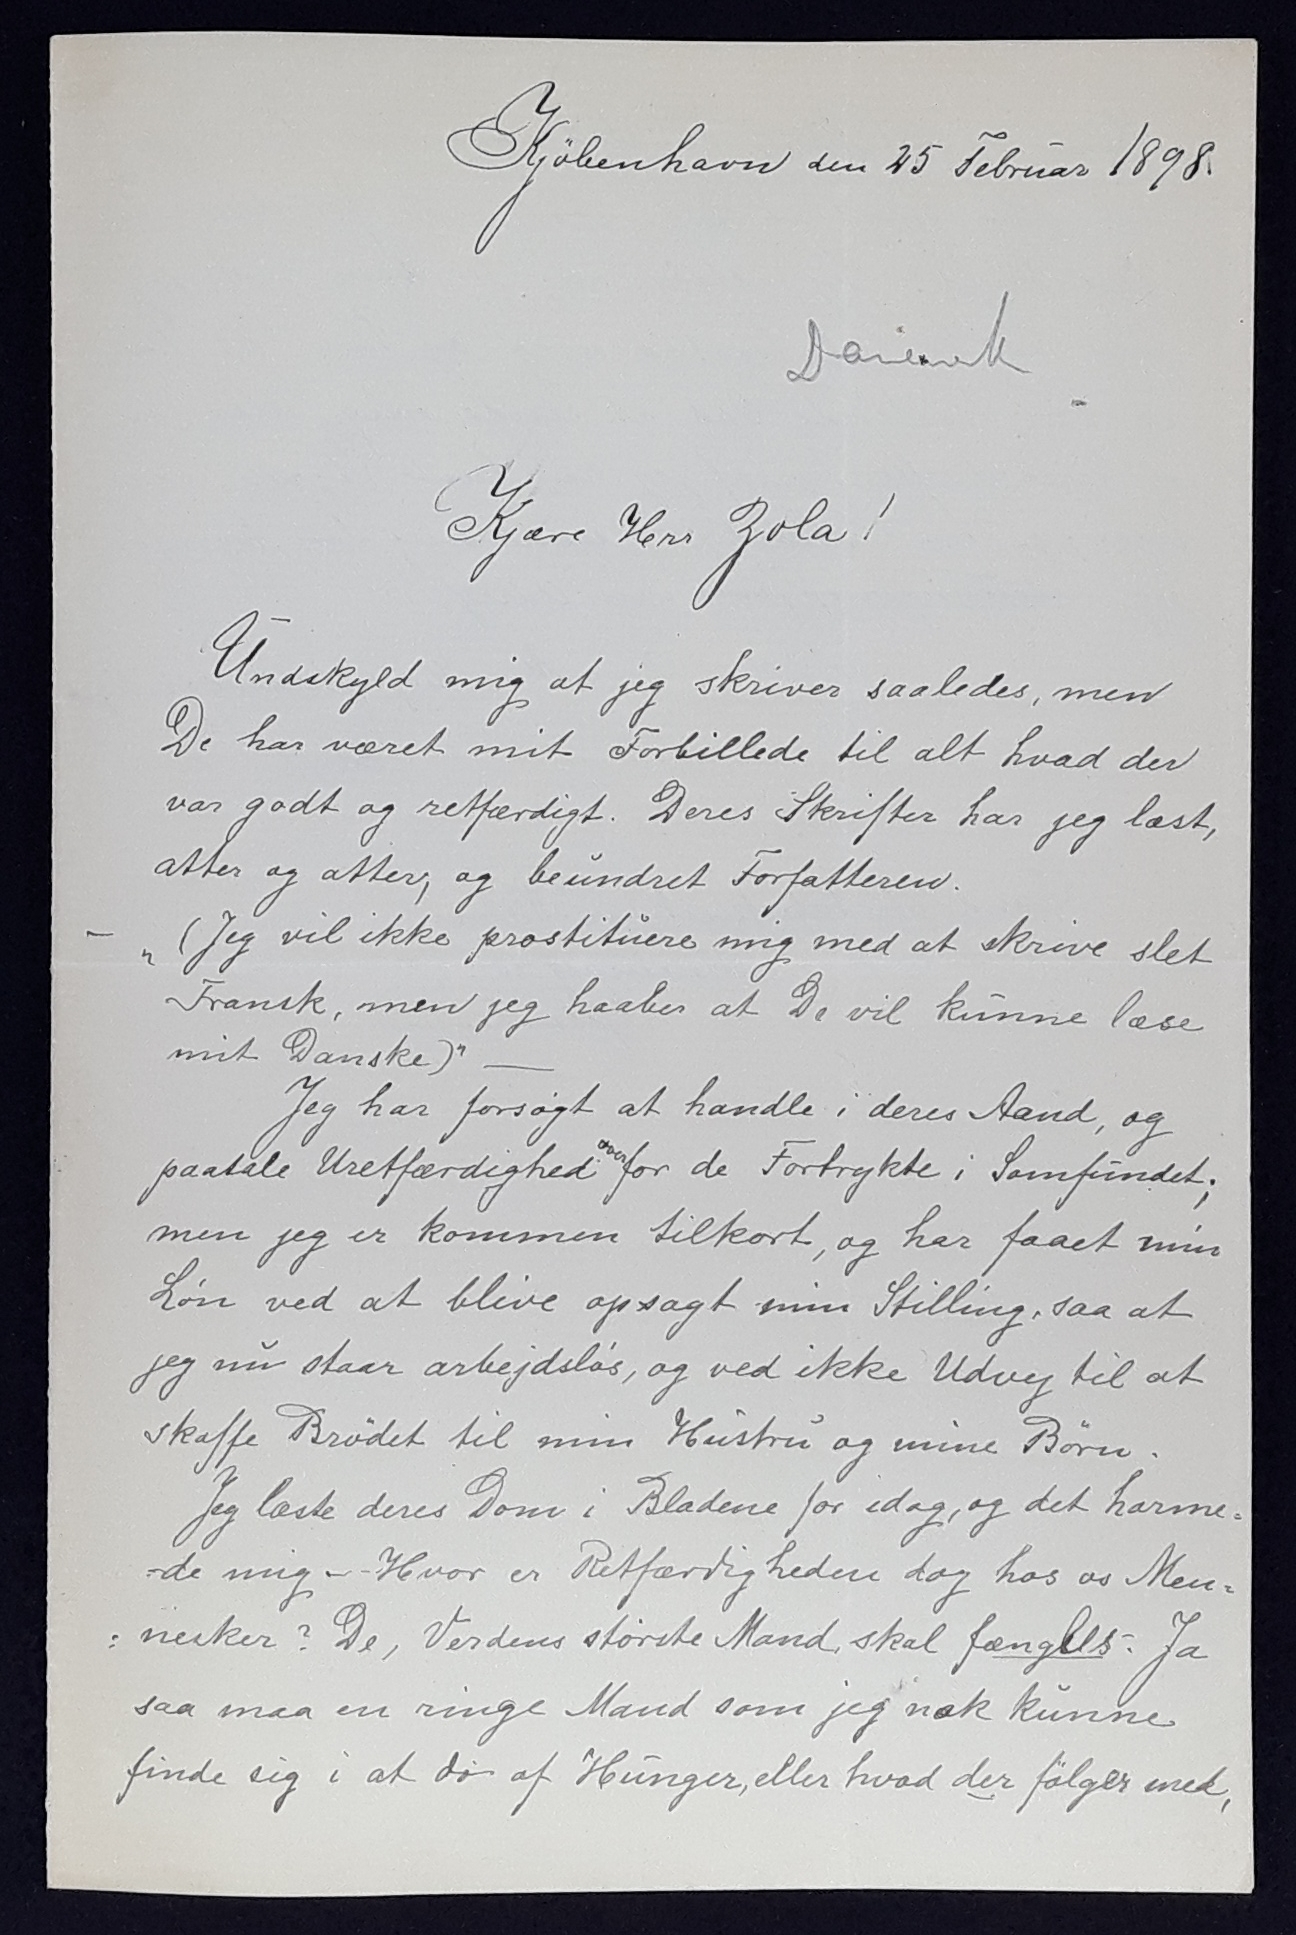 Kjöbenhavn den 25 Februar 1898.
Danemk
Kjære Herr Zola!
Undskyld mig at jeg skriver saaledes, men
De har været mit Forbillede til alt hvad der
var godt og retfærdigt. Deres Skrifter har jeg læst,
atter og atter, og beundret Forfatteren.
— „(Jeg vil ikke prostituere mig med at skrive slet
Fransk, men jeg haaber at De vil kunne læse
mit Danske)" —
Jeg har forsögt at handle i deres Aand, og
paatale Uretfærdighed overfor de Fortrykte i Samfundet;
men jeg er kommen tilkort, og har faaet min
Lön ved at blive opsagt min Stilling, saa at
jeg nu staar arbejdslös, og ved ikke Udvej til at
skaffe Brödet til min Hustru og mine Börn.
Jeg læste deres Dom i Bladene for idag, og det harme=
=de mig — Hvor er Retfærdigheden dog hos os Men=
=nesker? De, Verdens störste Mand, skal fængsles. Ja
saa maa en ringe Mand som jeg nok kunne
finde sig i at dö af Hunger, eller hvad der fölger med,